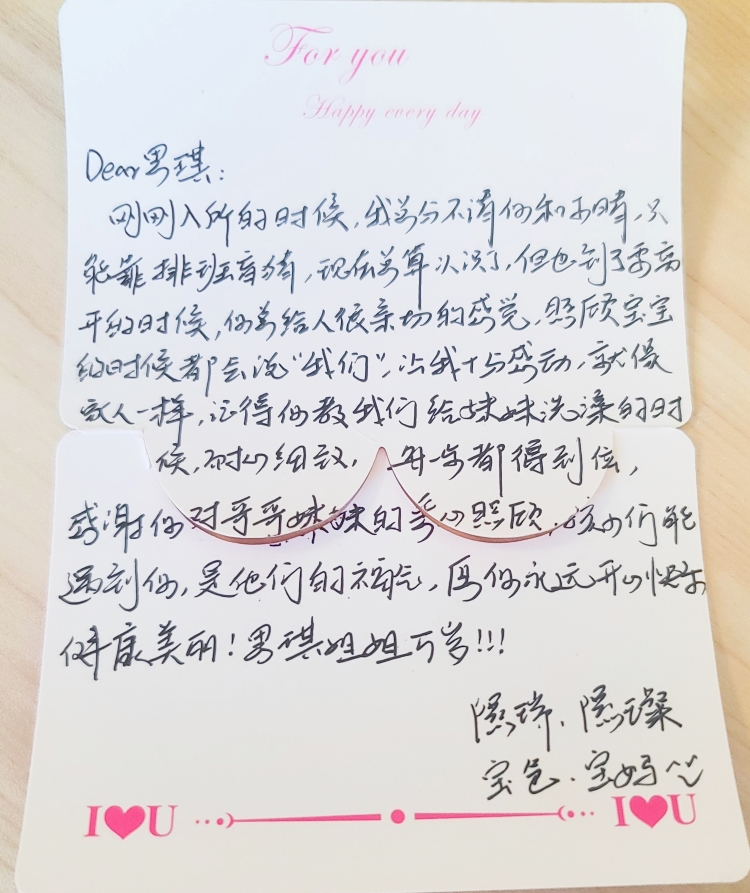 For you
Happy every day
Dear男琪：
刚刚入所的时候，我总分不清你和小晴，只
能靠排班查猜，现在总算认识了，但也到了要离
开的时候，你总给人很亲切的感觉，照顾宝宝
的时候都会说“我们”，让我十分感动，就像
家人一样，记得你教我们给妹妹洗澡的时
候，耐心细致，每步都得到位，
感谢你对哥哥妹妹的手心照顾，孩子们能
遇到你，是他们的福气，愿你永远开心快乐
健康美丽！男琪姐姐万岁!!!
隰瑞、隰璨
宝爸、宝妈
I❤U I❤U